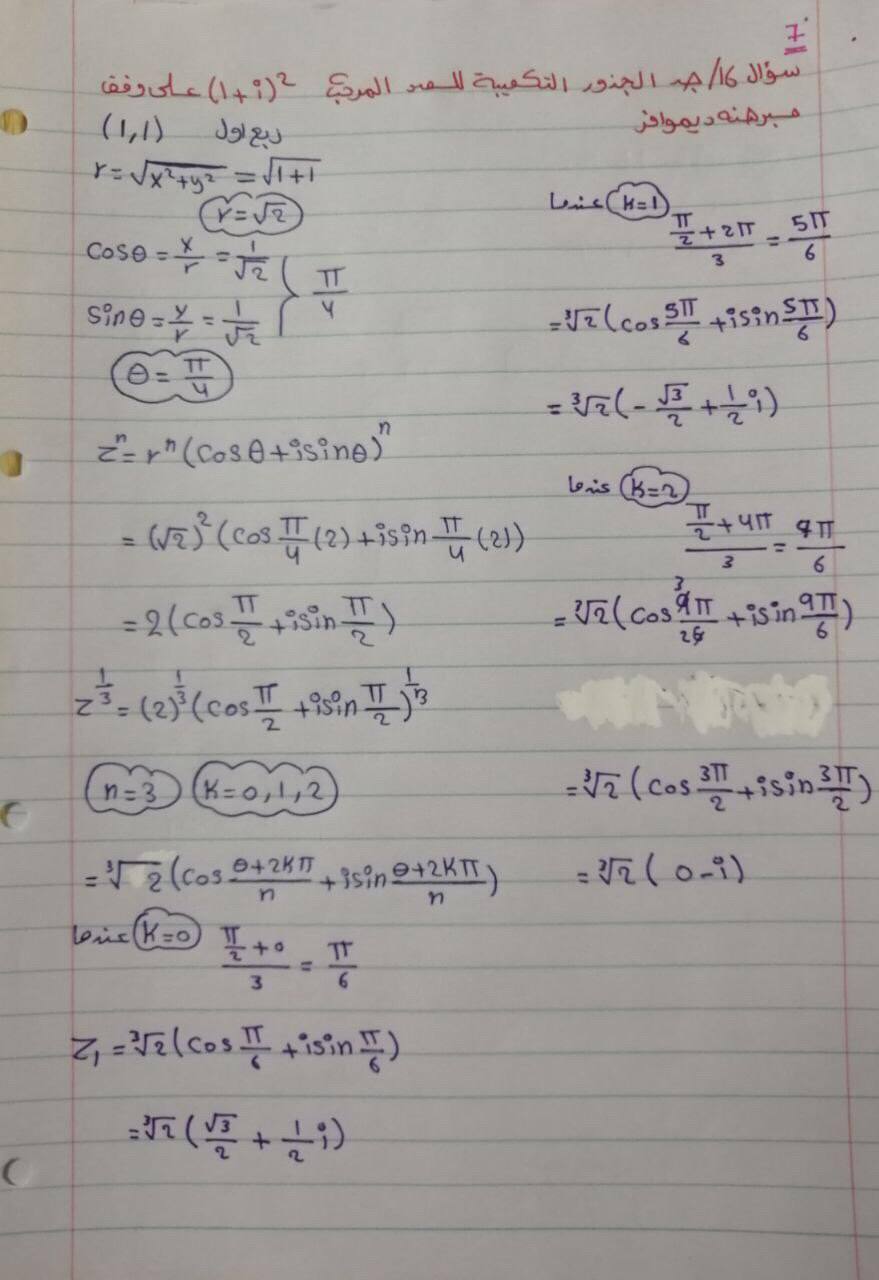 7
سؤال 16/ جد الجذور التكعيبية للعدد المركب (1+i)² على وفق
مبرهنة ديموافر
(1,1) ربع اول
r = √x²+y² = √1+1
r = √2
cosθ = x/r = 1/√2
sinθ = y/r = 1/√2 } π/4
θ = π/4
zⁿ = rⁿ (cosθ + isinθ)ⁿ
= (√2)² (cos π/4 (2) + isin π/4 (2))
= 2 (cos π/2 + isin π/2)
z^1/3 = (2)^1/3 (cos π/2 + isin π/2)^1/3
n=3 K=0,1,2
= ³√2 (cos θ+2Kπ/n + isin θ+2Kπ/n)
عندما K=0 (π/2 + 0)/3 = π/6
Z₁ = ³√2 (cos π/6 + isin π/6)
= ³√2 (√3/2 + 1/2 i)
عندما K=1
(π/2 + 2π)/3 = 5π/6
= ³√2 (cos 5π/6 + isin 5π/6)
= ³√2 (- √3/2 + 1/2 i)
عندما K=2
(π/2 + 4π)/3 = 9π/6
= ³√2 (cos 9π/6 + isin 9π/6)
= ³√2 (cos 3π/2 + isin 3π/2)
= ³√2 ( 0 - i)